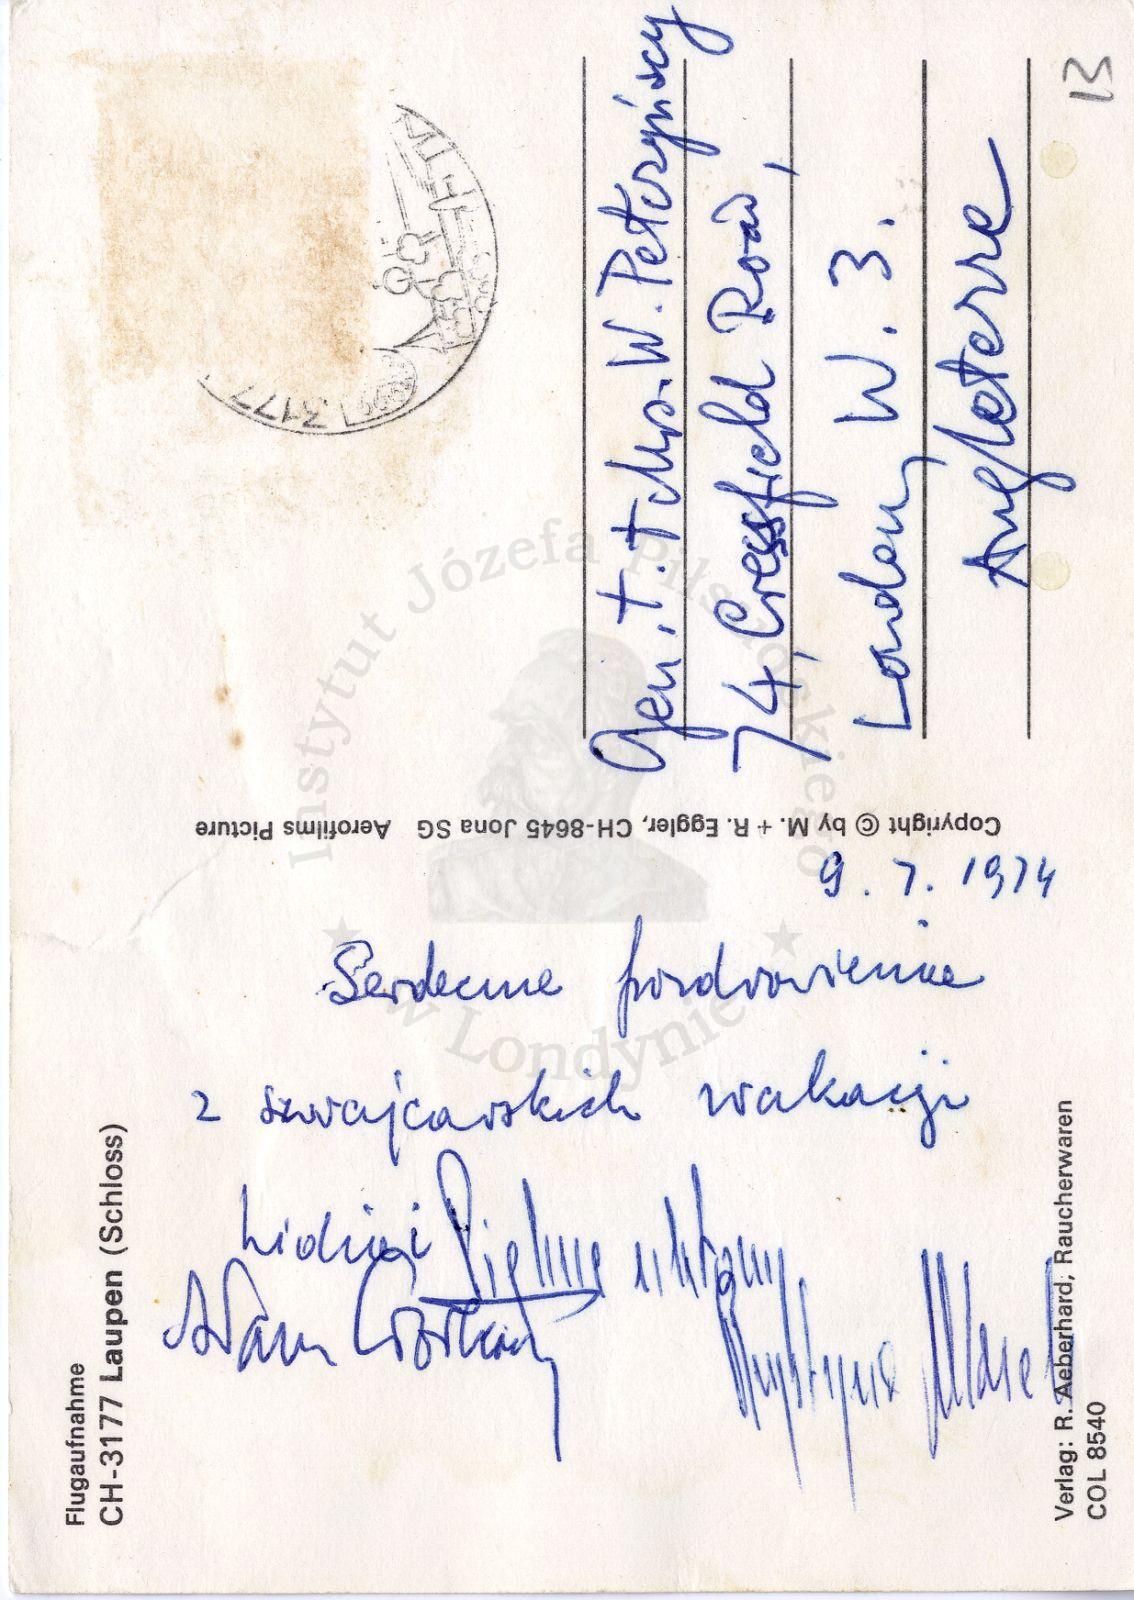 Flugaufnahme
CH-3177 Laupen (Schloss)
9. 7. 1974
Serdeczne pozdrowienia
z szwajcarskich wakacji
Lidia i
Adam
Piękne ukłony
Krystyna Marek
Verlag: R. Aeberhard, Raucherwaren
COL 8540
Copyright © by M. + R. Eggler, CH-8645 Jona SG Aerofilms Picture
3177
Gen. W. Pełczyńscy
74, Cressfield Road,
London, W. 3.
Angleterre
13
Instytut Józefa Piłsudskiego
w Londynie